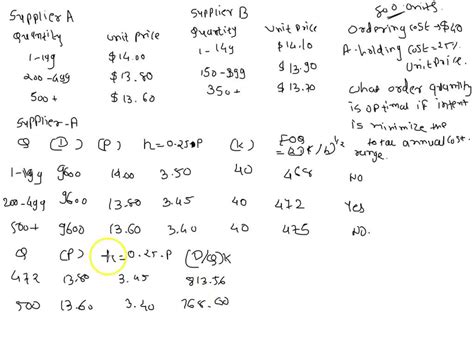 Supplier A Supplier B 800 units
Quantity Unit Price Quantity Unit Price Ordering cost → $40
1-199 $14.00 1-149 $14.10 A. holding cost = 25%
Unit Price.
200-499 $13.80 150-399 $13.90 what order quantity
500+ $13.60 350+ $13.70 is optimal if intent
Supplier-A is minimize the
total annual cost.
Q (D) (P) h=0.25.P (K) EOQ range.
1-199 9600 14.00 3.50 40 468 NO
200-499 9600 13.80 3.45 40 472 Yes
500+ 9600 13.60 3.40 40 475 NO.
Q (P) h=0.25.P (D/Q)K
472 13.80 3.45 813.56
500 13.60 3.40 768.00